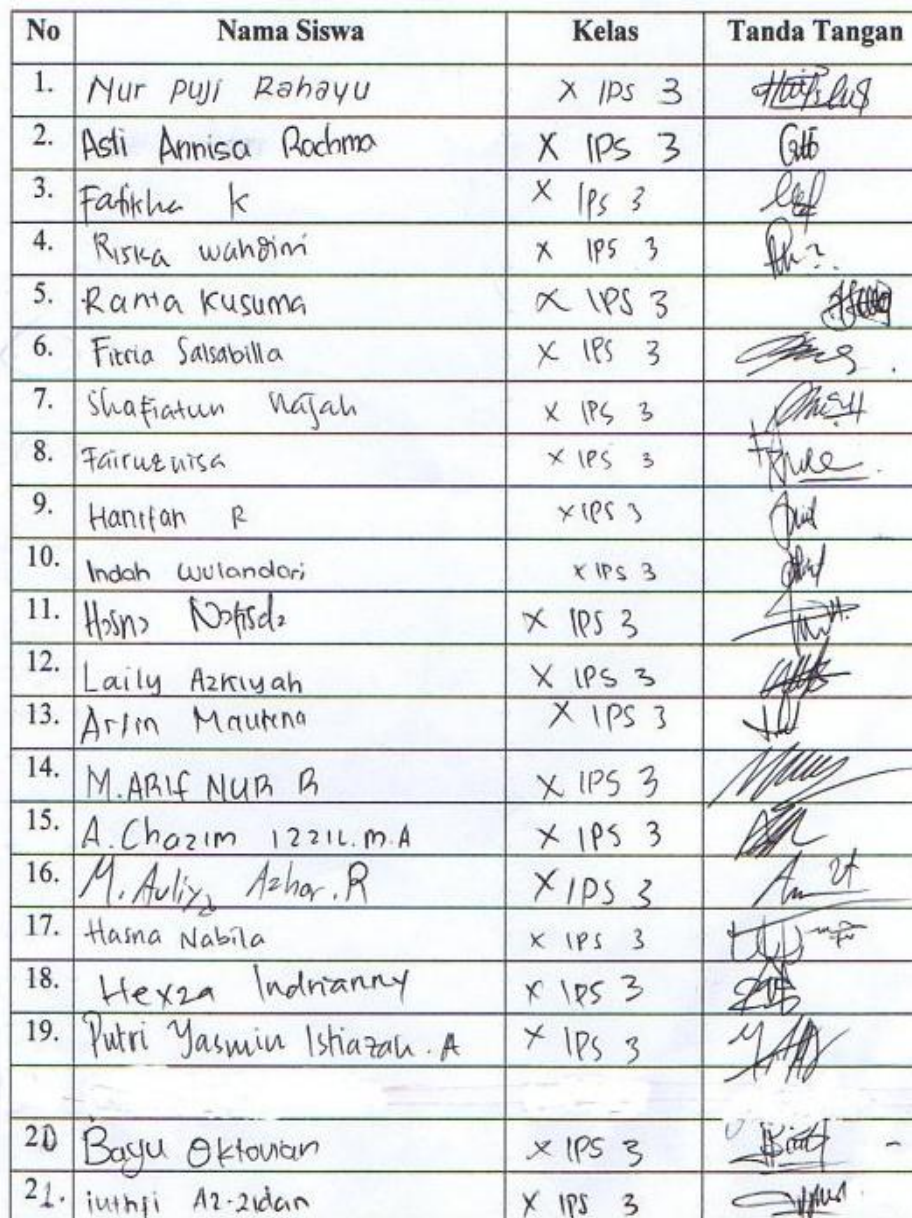 No Nama Siswa Kelas Tanda Tangan
1. Nur Puji Rahayu X IPS 3
2. Asti Annisa Rochma X IPS 3
3. Fatikha K X IPS 3
4. Riska wahdini X IPS 3
5. Rania Kusuma X IPS 3
6. Fitria Salsabilla X IPS 3
7. Shafiatun Najah X IPS 3
8. Fairuznisa X IPS 3
9. Hanifah R X IPS 3
10. Indah wulandari X IPS 3
11. Hasna X IPS 3
12. Laily Azkiyah X IPS 3
13. Arlin Maulena X IPS 3
14. M. ARIF NUR R X IPS 3
15. A. Chazim 1221L.M.A X IPS 3
16. M. Auliya Azhar. R X IPS 3
17. Hasna Nabila X IPS 3
18. Hexza Indrianny X IPS 3
19. Putri Yasmin Istiazah . A X IPS 3
20 Bayu Oktovian X IPS 3
21. Az-zidan X IPS 3